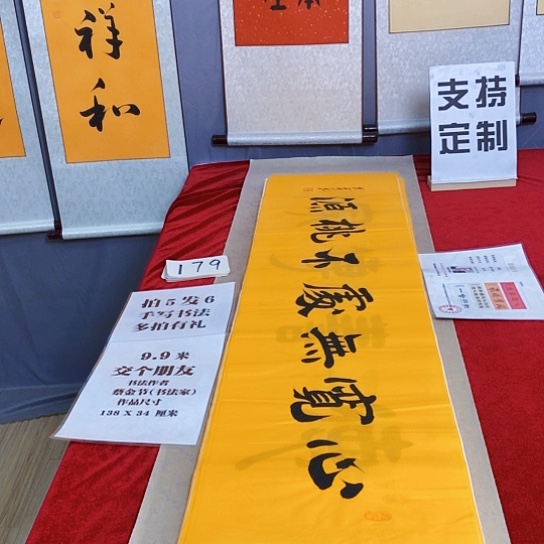 祥和
支持
定制
179
拍5发6
手写书法
多拍有礼
9.9米
交个朋友
书法作者
蔡金节(书法家)
作品尺寸
138 X 34 厘米
心寬無處不桃源